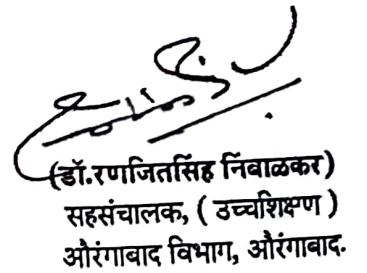 (डॉ.रणजितसिंह निंबाळकर)
सहसंचालक, ( उच्चशिक्षण )
औरंगाबाद विभाग, औरंगाबाद.